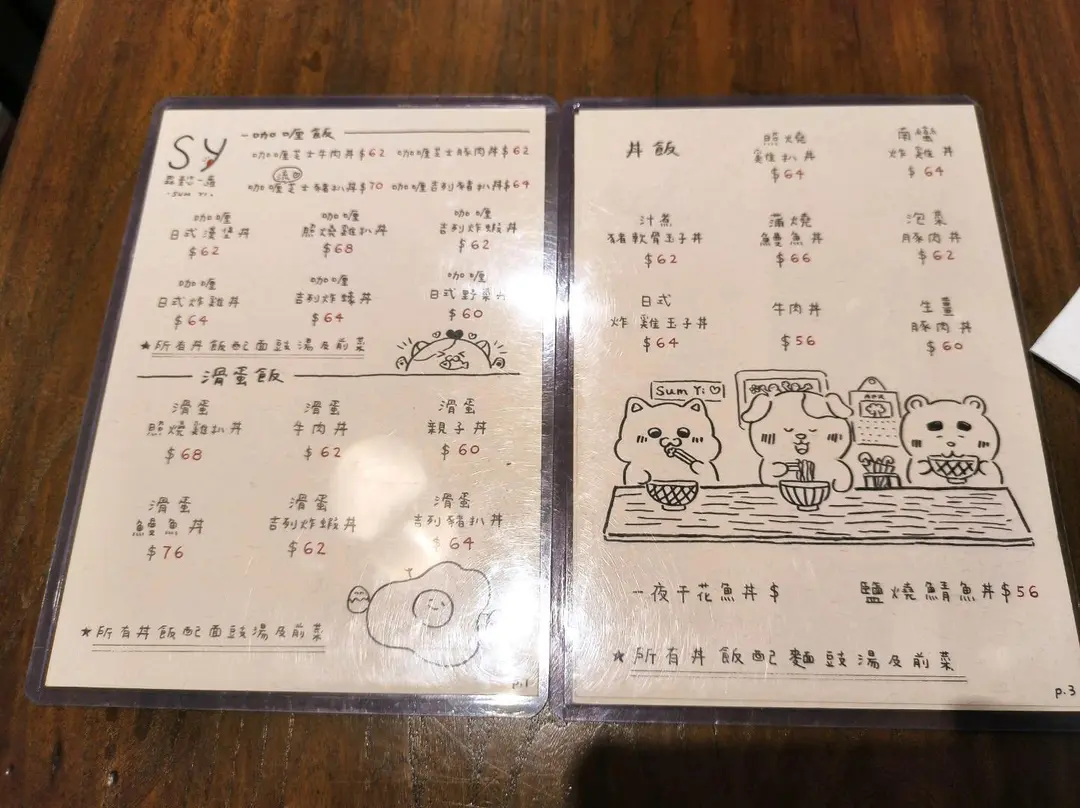 SY
SUM YI.
咖喱飯
咖喱芝士牛肉丼$62 咖喱芝士豚肉丼$62
咖喱芝士豬扒丼$70 咖喱吉列豬扒丼$64
咖喱 咖喱 咖喱
日式漢堡丼 照燒雞扒丼 吉列炸蝦丼
$62 $68 $62
咖喱 咖喱 咖喱
日式炸雞丼 吉列炸蠔丼 日式野菜
$64 $64 $60
★所有丼飯配面豉湯及前菜
滑蛋飯
滑蛋 滑蛋 滑蛋
照燒雞扒丼 牛肉丼 親子丼
$68 $62 $60
滑蛋 滑蛋 滑蛋
鰻魚丼 吉列炸蝦丼 吉列豬扒丼
$76 $62 $64
★所有丼飯配面豉湯及前菜
p.1
丼飯
照燒 南蠻
雞扒丼 炸雞丼
$64 $64
汁煮 蒲燒 泡菜
豬軟骨玉子丼 鰻魚丼 豚肉丼
$62 $66 $62
日式 牛肉丼 生薑
炸雞玉子丼 豚肉丼
$64 $56 $60
Sum Yi
一夜干花魚丼$ 鹽燒鯖魚丼$56
★所有丼飯配麵豉湯及前菜
p.3